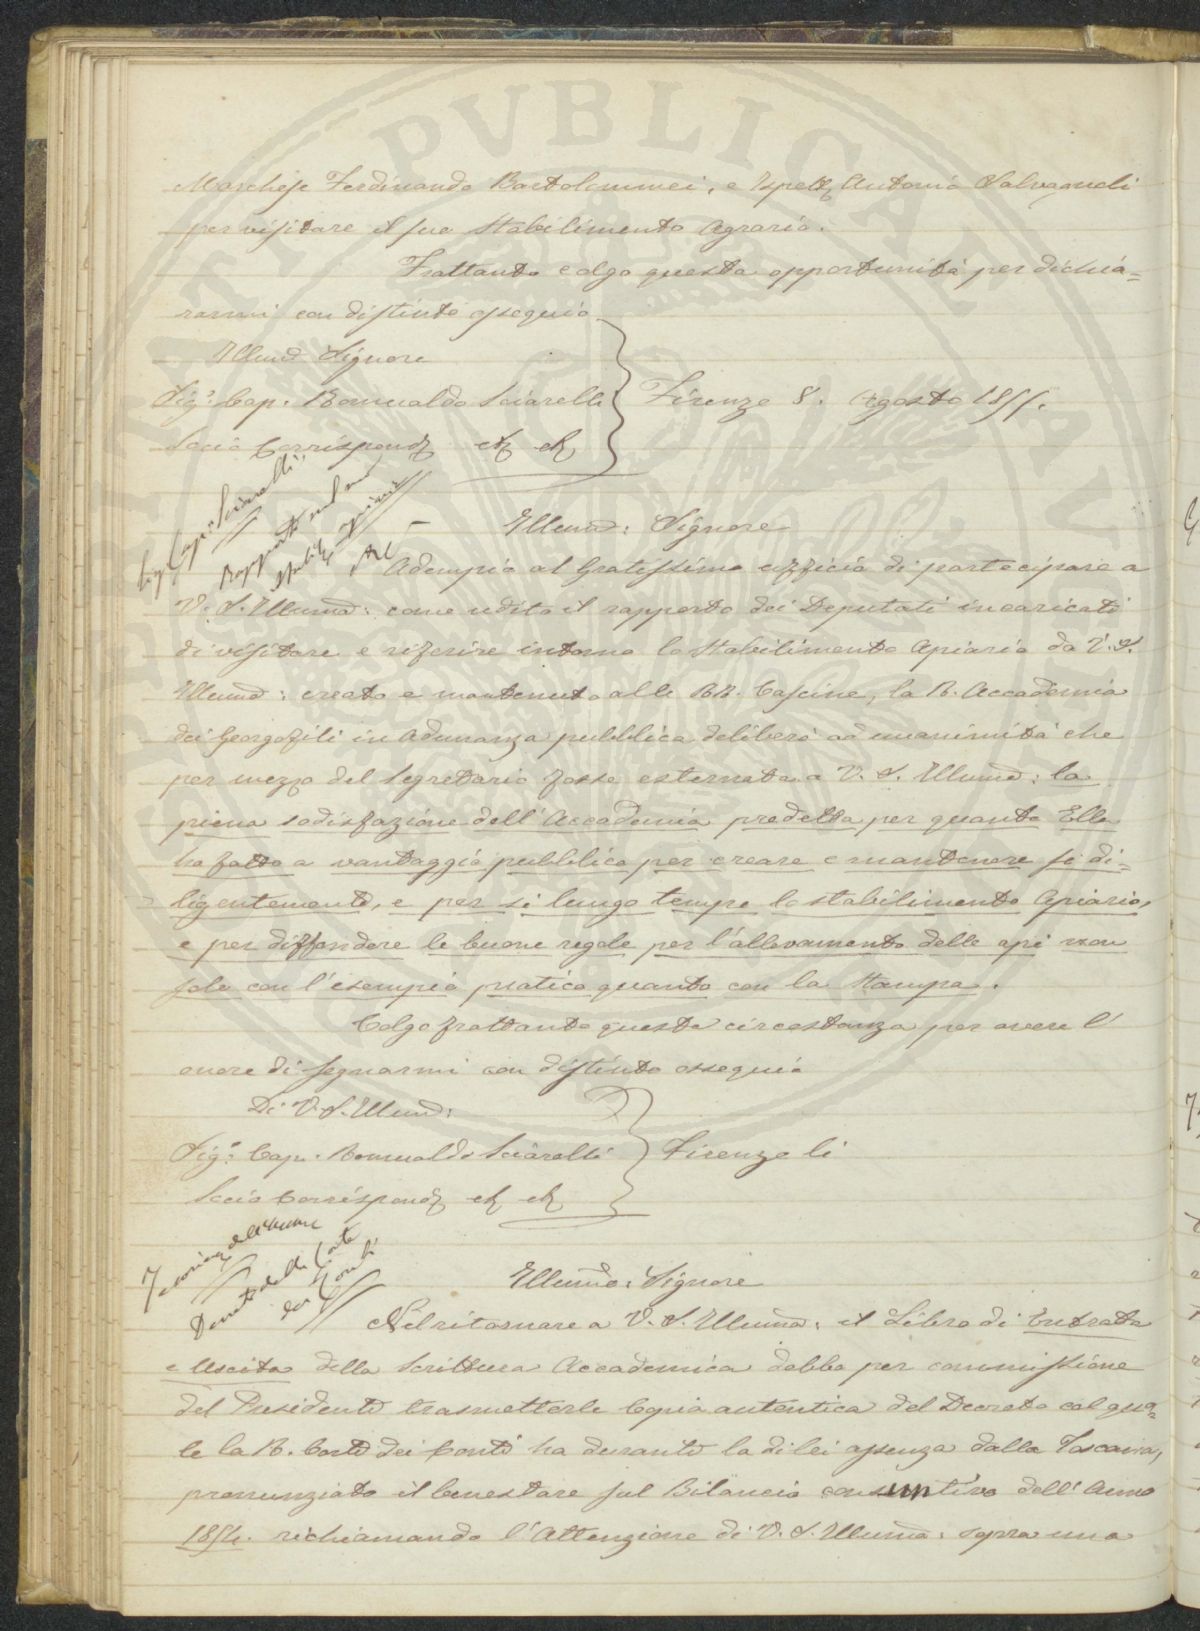 Marchese Ferdinando Bartolommei, e Antonio Salvagnoli
per visitare il suo Stabilimento Agrario.
Frattanto colgo questa opportunità per dichia=
rarmi con distinto ossequio
Illmo Signore
Sigr. Cap. Romualdo Sciarelli Firenze 8. Agosto 1855.
Socio Corrispond
Sigr Cap: Sciarelli
Rapporto sul suo
Illmo: Signore
Adempio al Gratissimo ufficio di partecipare a
V. S. Illma: come udito il rapporto dei Deputati incaricati
di visitare e riferire intorno lo Stabilimento Apiario da V. S.
Illma: creato e mantenuto alle RR. Cascine, la R. Accademia
dei Georgofili in Adunanza pubblica deliberò ad unanimità che
per mezzo del Segretario fosse esternata a V. S. Illma: la
piena sodisfazione dell'Accademia predetta per quanto Ella
ha fatto a vantaggio pubblico per creare e mantenere sì di=
ligentemente, e per sì lungo tempo lo stabilimento Apiario,
e per diffondere le buone regole per l'allevamento delle api non
solo con l'esempio pratico quanto con la Stampa.
Colgo frattanto questa circostanza per avere l'
onore di segnarmi con distinto ossequio
Di V. S. Illma:
Sigr. Cap. Romualdo Sciarelli Firenze li
Socio Corrispond
della Corte
dei Conti
Illmo: Signore
Nel ritornare a V. S. Illma: il Libro di Entrata
e Uscita della Scrittura Accademica debbo per commissione
del Presidente trasmetterle Copia autentica del Decreto col qua=
le la R. Corte dei Conti ha durante la di lei assenza dalla Toscana,
pronunziato il benestare sul Bilancio consuntivo dell'Anno
1854. richiamando l'Attenzione di V. S. Illma: sopra una